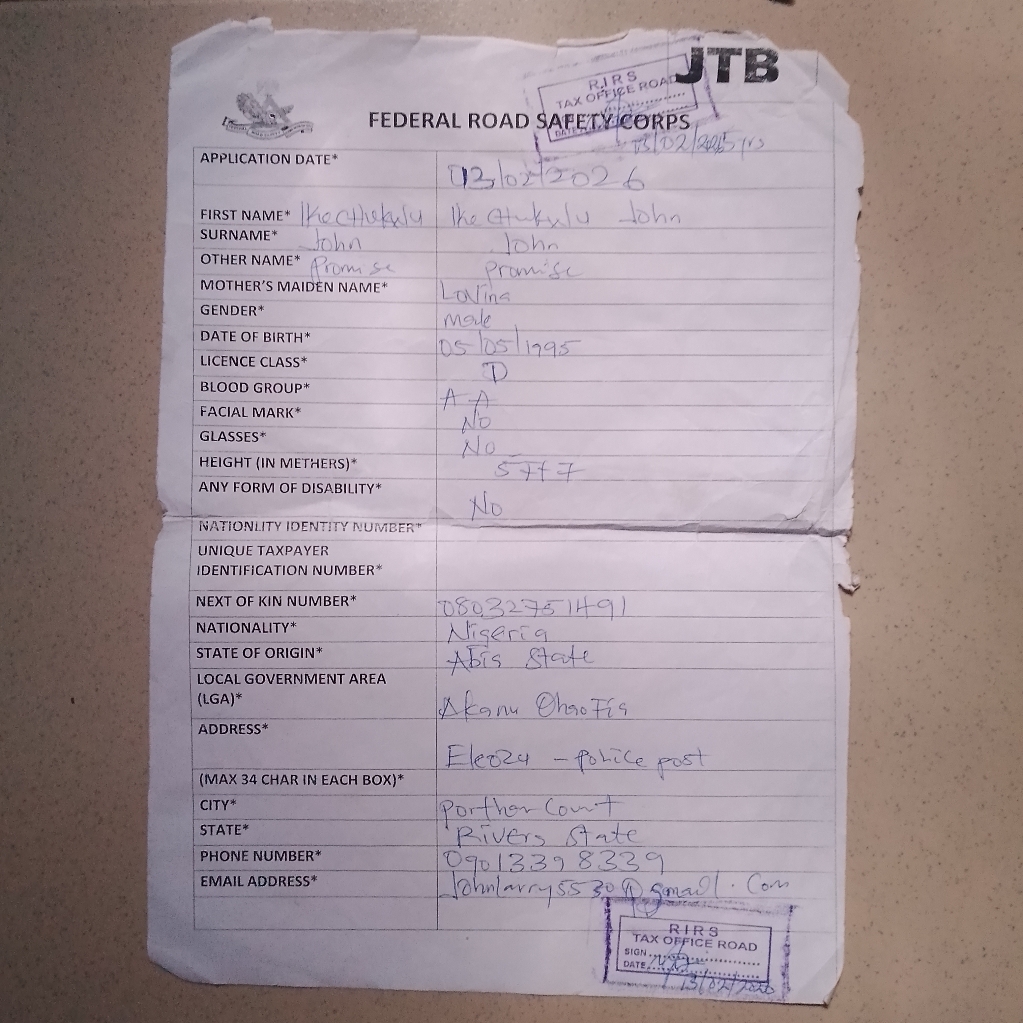 JTB
R.I.R.S
TAX OFFICE ROAD
FEDERAL ROAD SAFETY CORPS
APPLICATION DATE* 13/02/2026
FIRST NAME* John
SURNAME* John John
OTHER NAME* Promise Promise
MOTHER'S MAIDEN NAME* Lovina
GENDER* Male
DATE OF BIRTH* 05/05/1995
LICENCE CLASS* D
BLOOD GROUP* AA
FACIAL MARK* No
GLASSES* No
HEIGHT (IN METHERS)*
ANY FORM OF DISABILITY* No
NATIONLITY IDENTITY NUMBER*
UNIQUE TAXPAYER
IDENTIFICATION NUMBER*
NEXT OF KIN NUMBER* 08032751491
NATIONALITY* Nigeria
STATE OF ORIGIN* Abia State
LOCAL GOVERNMENT AREA
(LGA)* Akanu Ohaofia
ADDRESS*
- police post
(MAX 34 CHAR IN EACH BOX)*
CITY* Porthar Court
STATE* Rivers State
PHONE NUMBER* 09013398339
EMAIL ADDRESS* Johnlarry5530@gmail.com
RIRS
TAX OFFICE ROAD
SIGN
DATE 13/02/2026